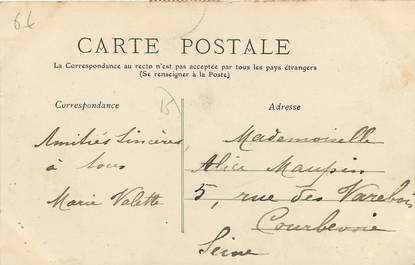 64
CARTE POSTALE
La Correspondance au recto n'est pas acceptée par tous les pays étrangers
(Se renseigner à la Poste)
Correspondance
Adresse
15
Amitiés Sincères,
à tous
Marie Valette
Mademoiselle
Alice Maupin
5, rue des
Courbevoie
Seine